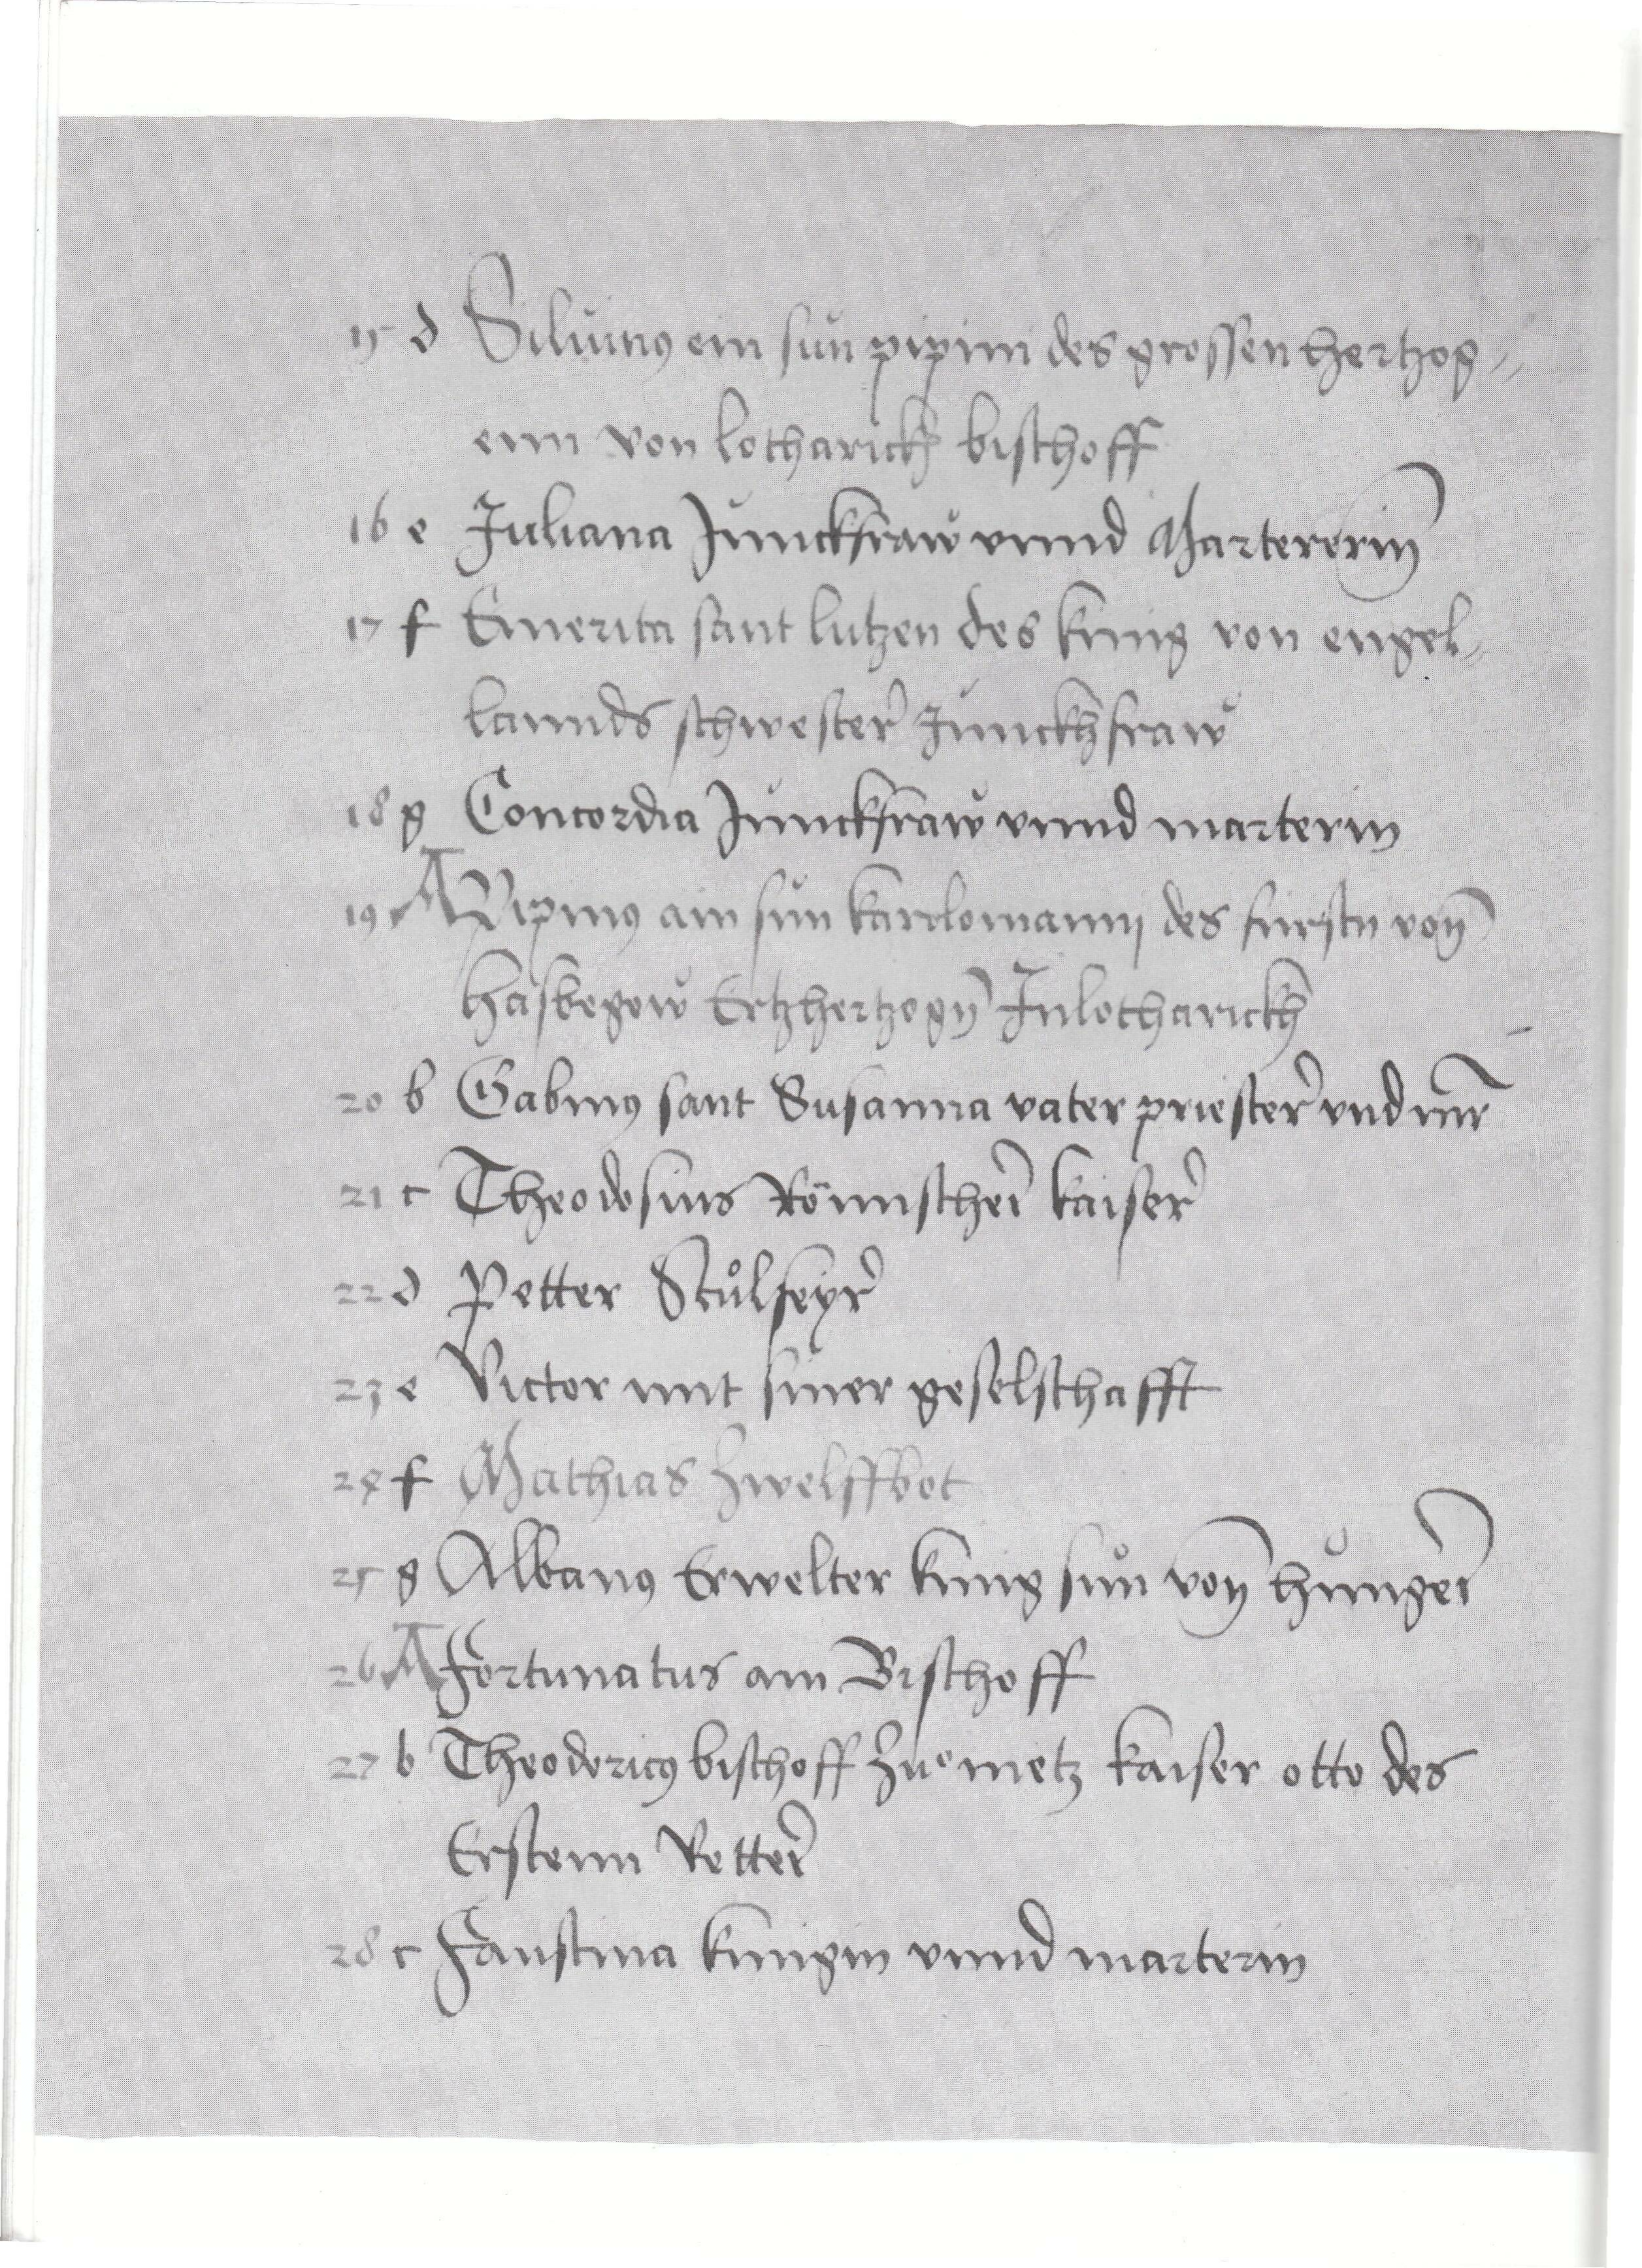 15 d Siluinus ein sun pipini des grossen hertzog=
enn von lotharickh bischoff
16 e Juliana Junckfraw vnnd Martererin
17 f Emerita sant lutzen des kunig von engel=
lannds schwester Junckhfraw
18 g Concordia Junckfraw vnnd marterin
19 A Pipinus ain sun karolomannj des furstn von
hasbegew Ertzhertzogn Jnlotharickh
20 b Gabinus sant Susanna vater priester vnd mr
21 c Theodosius Römischer kaiser
22 d Petter Stůlfeyr
23 e Victor mit siner geselschafft
24 f Mathias Zwelffbot
25 g Albanus Erwelter kunig sun von hunger
26 A Fortunatus ain Bischoff
27 b Theodoricus bischoff Zuo metz kaiser otto des
Erstenn Vetter
28 c Faustina kunigin vnnd marterin